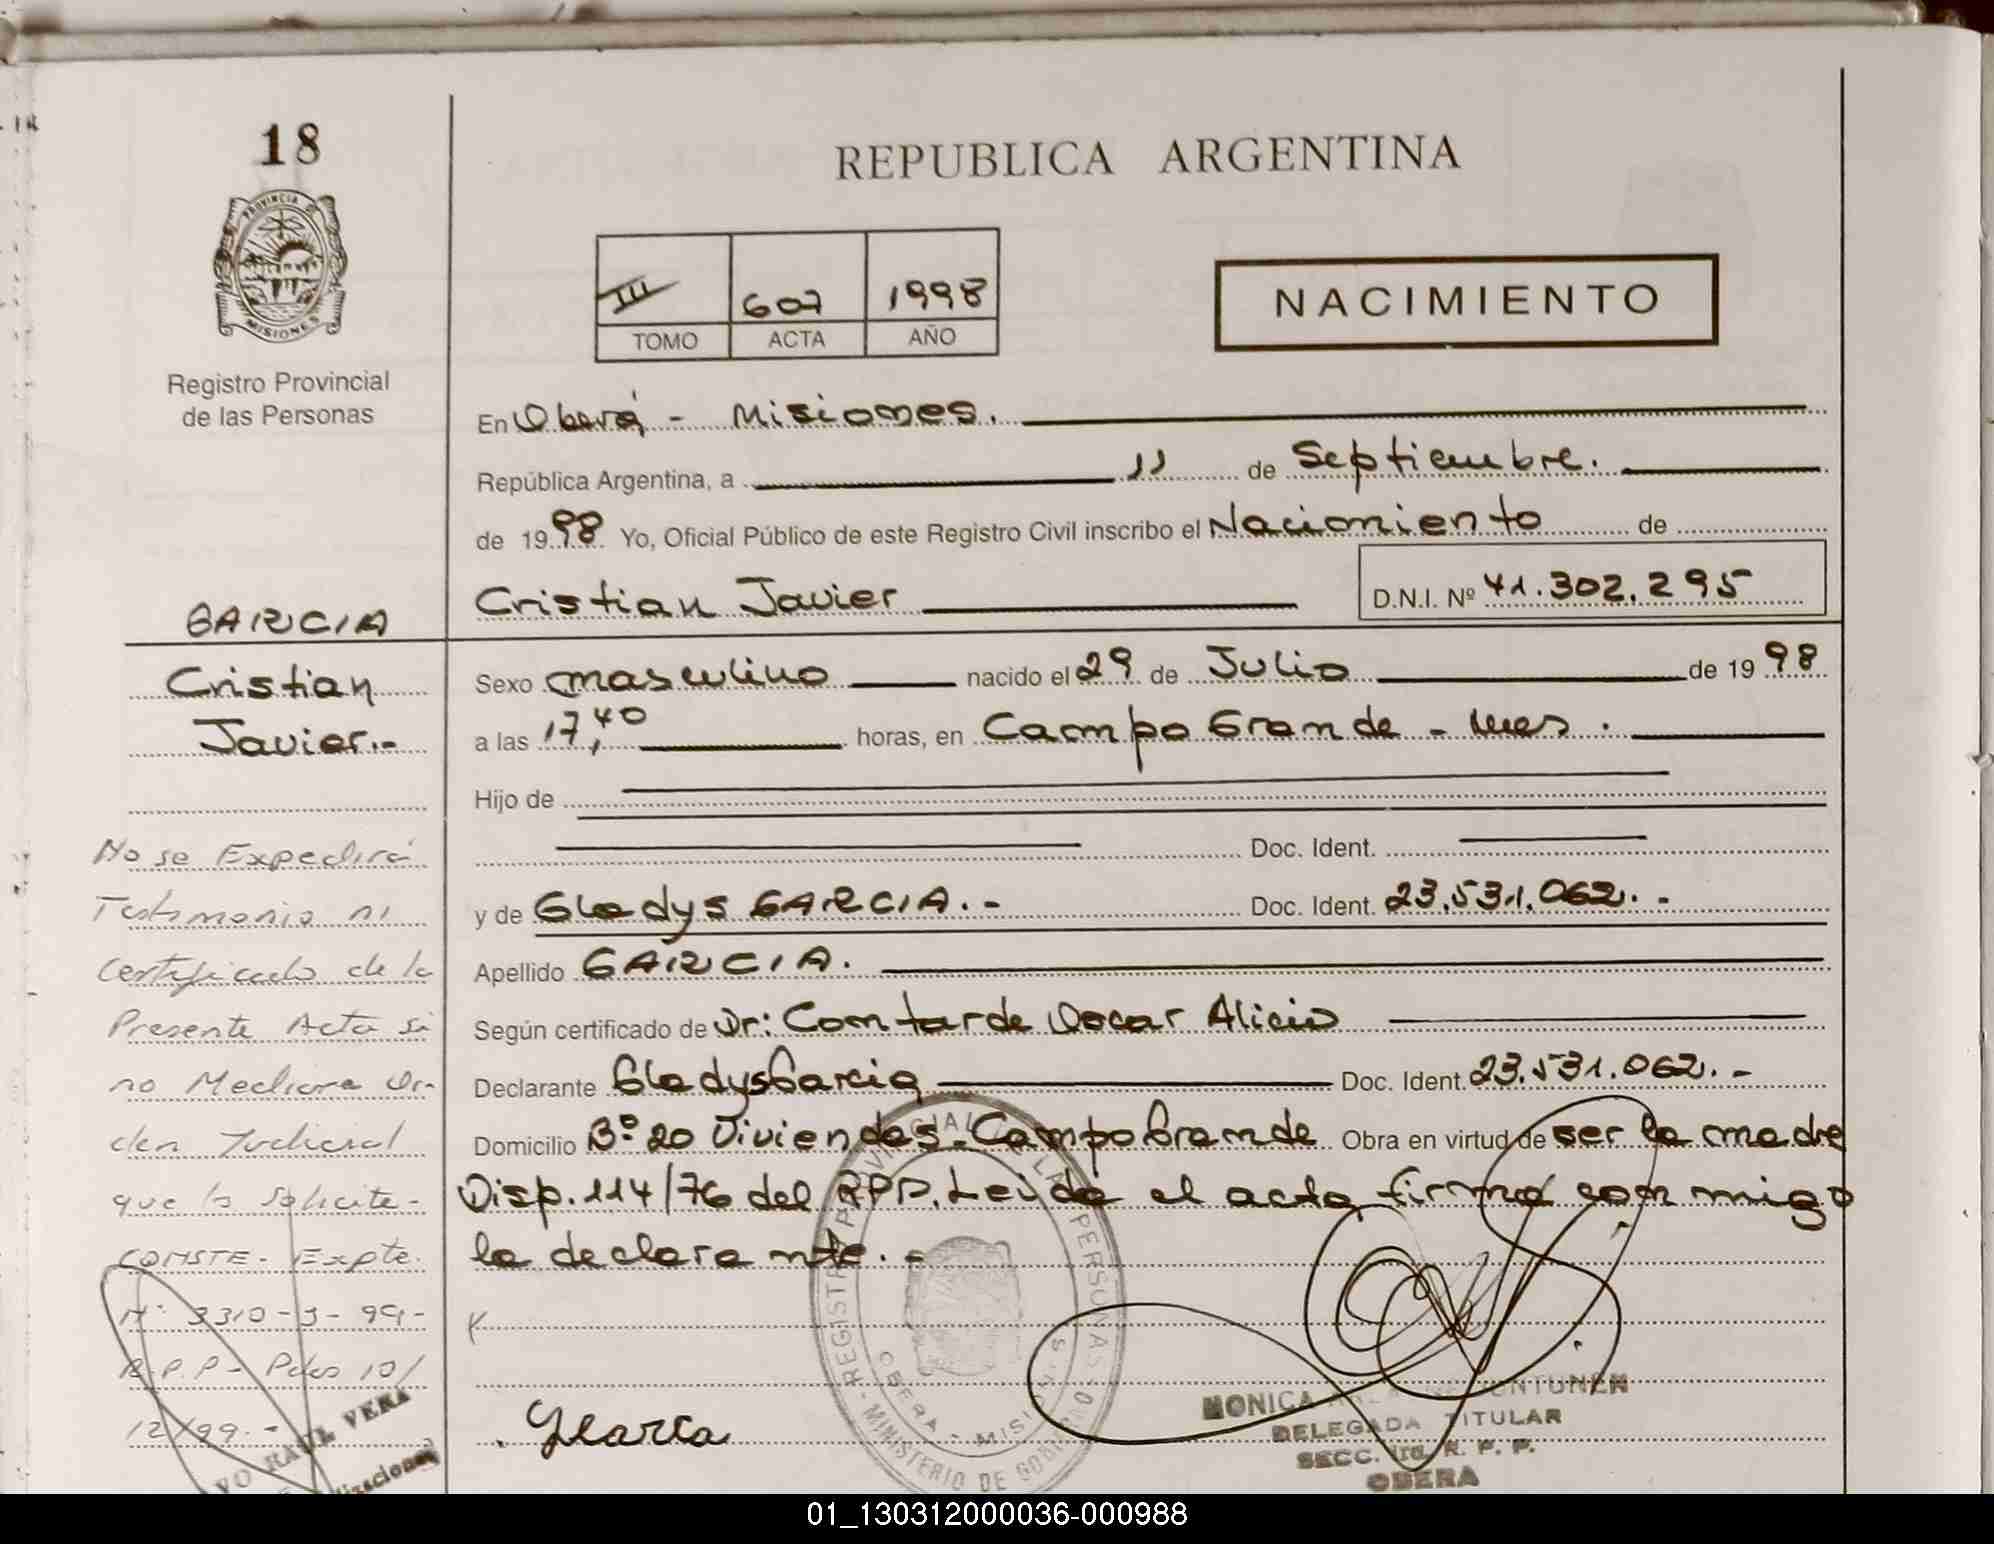 18
PROVINCIA DE
MISIONES
Registro Provincial
de las Personas
REPUBLICA ARGENTINA
III 607 1998
TOMO ACTA AÑO
NACIMIENTO
En Oberá - Misiones.
República Argentina, a 11 de Septiembre.
de 1998 Yo, Oficial Público de este Registro Civil inscribo el Nacimiento de
Cristian Javier D.N.I. Nº 41.302.295
Sexo masculino nacido el 29 de Julio de 1998
a las 17,40 horas, en Campo Grande - Mnes.
Hijo de
Doc. Ident.
y de Gladys GARCIA.- Doc. Ident. 23.531.062.-
Apellido GARCIA.
Según certificado de Dr: Comtarde Oscar Alicio
Declarante Gladys Garcia Doc. Ident. 23.531.062.-
Domicilio Bº 20 Viviendas - Campo Grande Obra en virtud de ser la madre
Disp. 114/76 del RPP. Leída el acta firma conmigo
la declarante.-
GARCIA
Cristian
Javier.-
No se Expedirá
Testimonio ni
Certificado de la
Presente Acta si
no Mediare Or-
den Judicial
que lo solicite-
CONSTE- Expte.
Nº 3310-3-99-
R.P.P- Pdas 10/
12/99.-
RAUL VERA
REGISTRO PROVINCIAL DE LAS PERSONAS
MINISTERIO DE GOBIERNO
OBERA - MISIONES
MONICA
DELEGADA TITULAR
SECC. 1ra. R. P. P.
OBERA
01_130312000036-000988